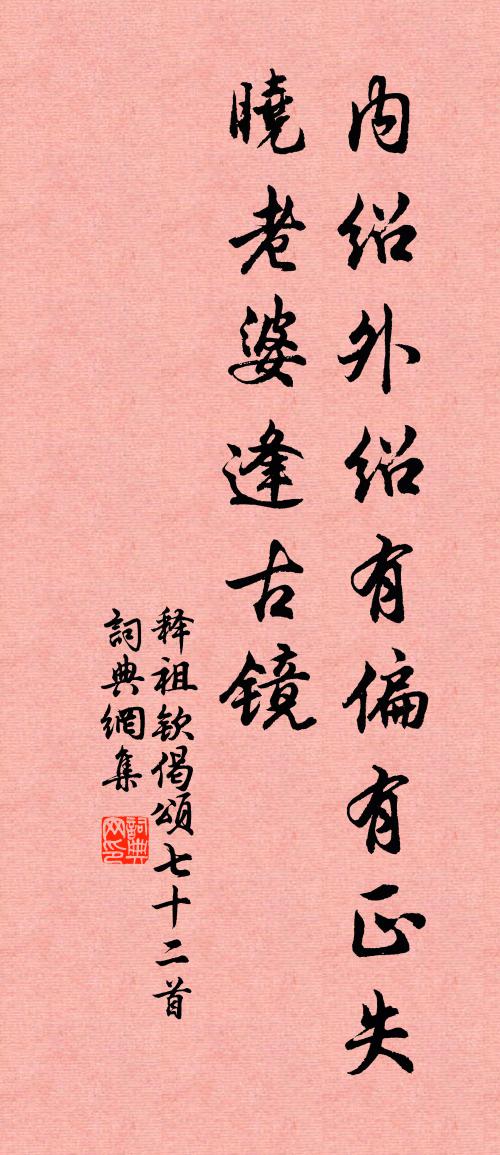 内绍外绍有偏有正失
曉老婆逢古镜
释祖钦偈頌七十二首
詞典網集
詞典网印